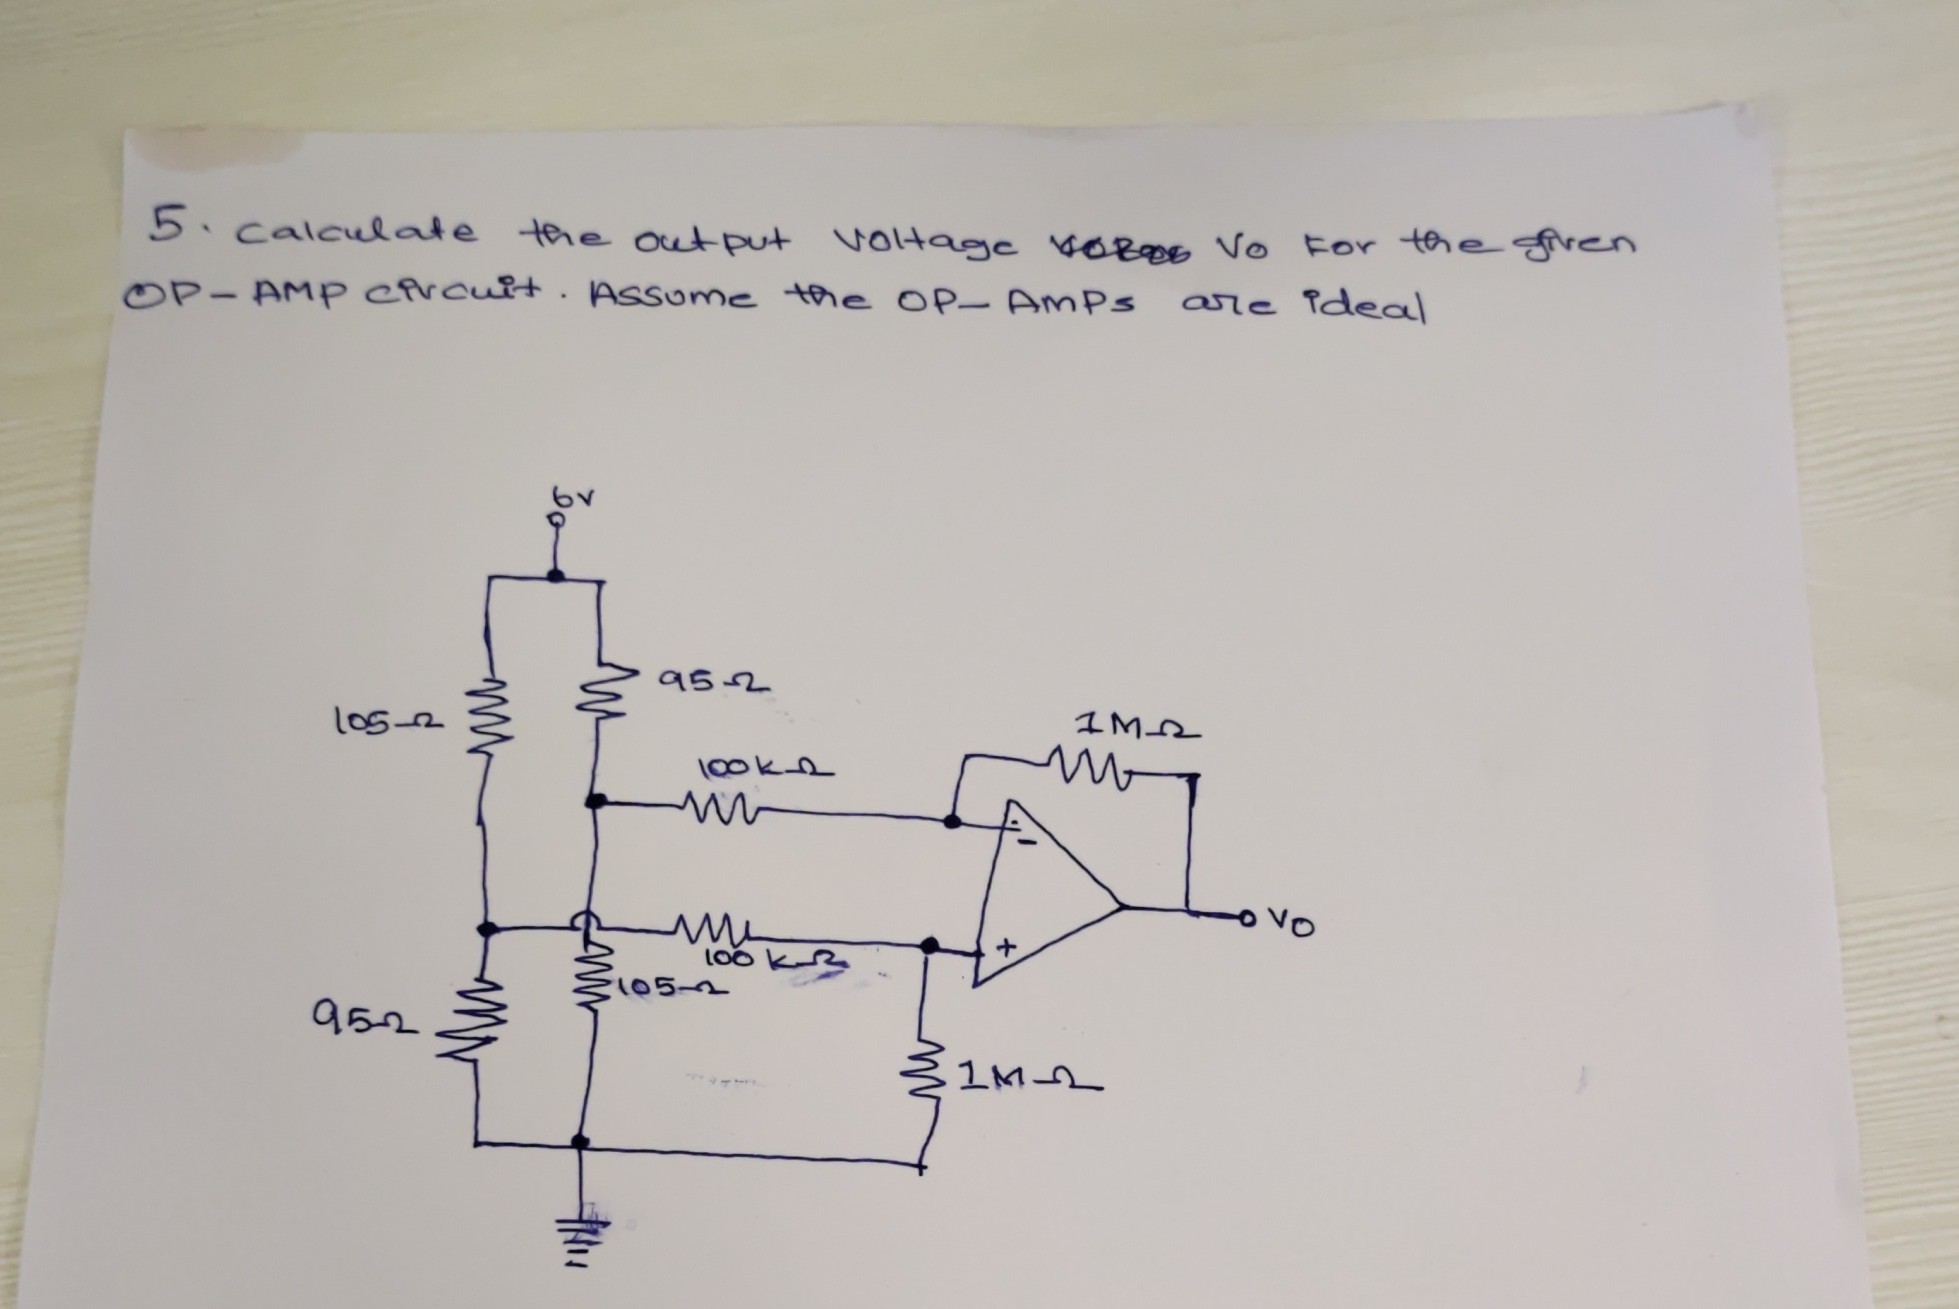 5. Calculate the output voltage Vo For the given
OP-AMP circuit. Assume the OP-AMPs are ideal
6V
95Ω
105Ω
1MΩ
100kΩ
Vo
100kΩ
105Ω
95Ω
1MΩ